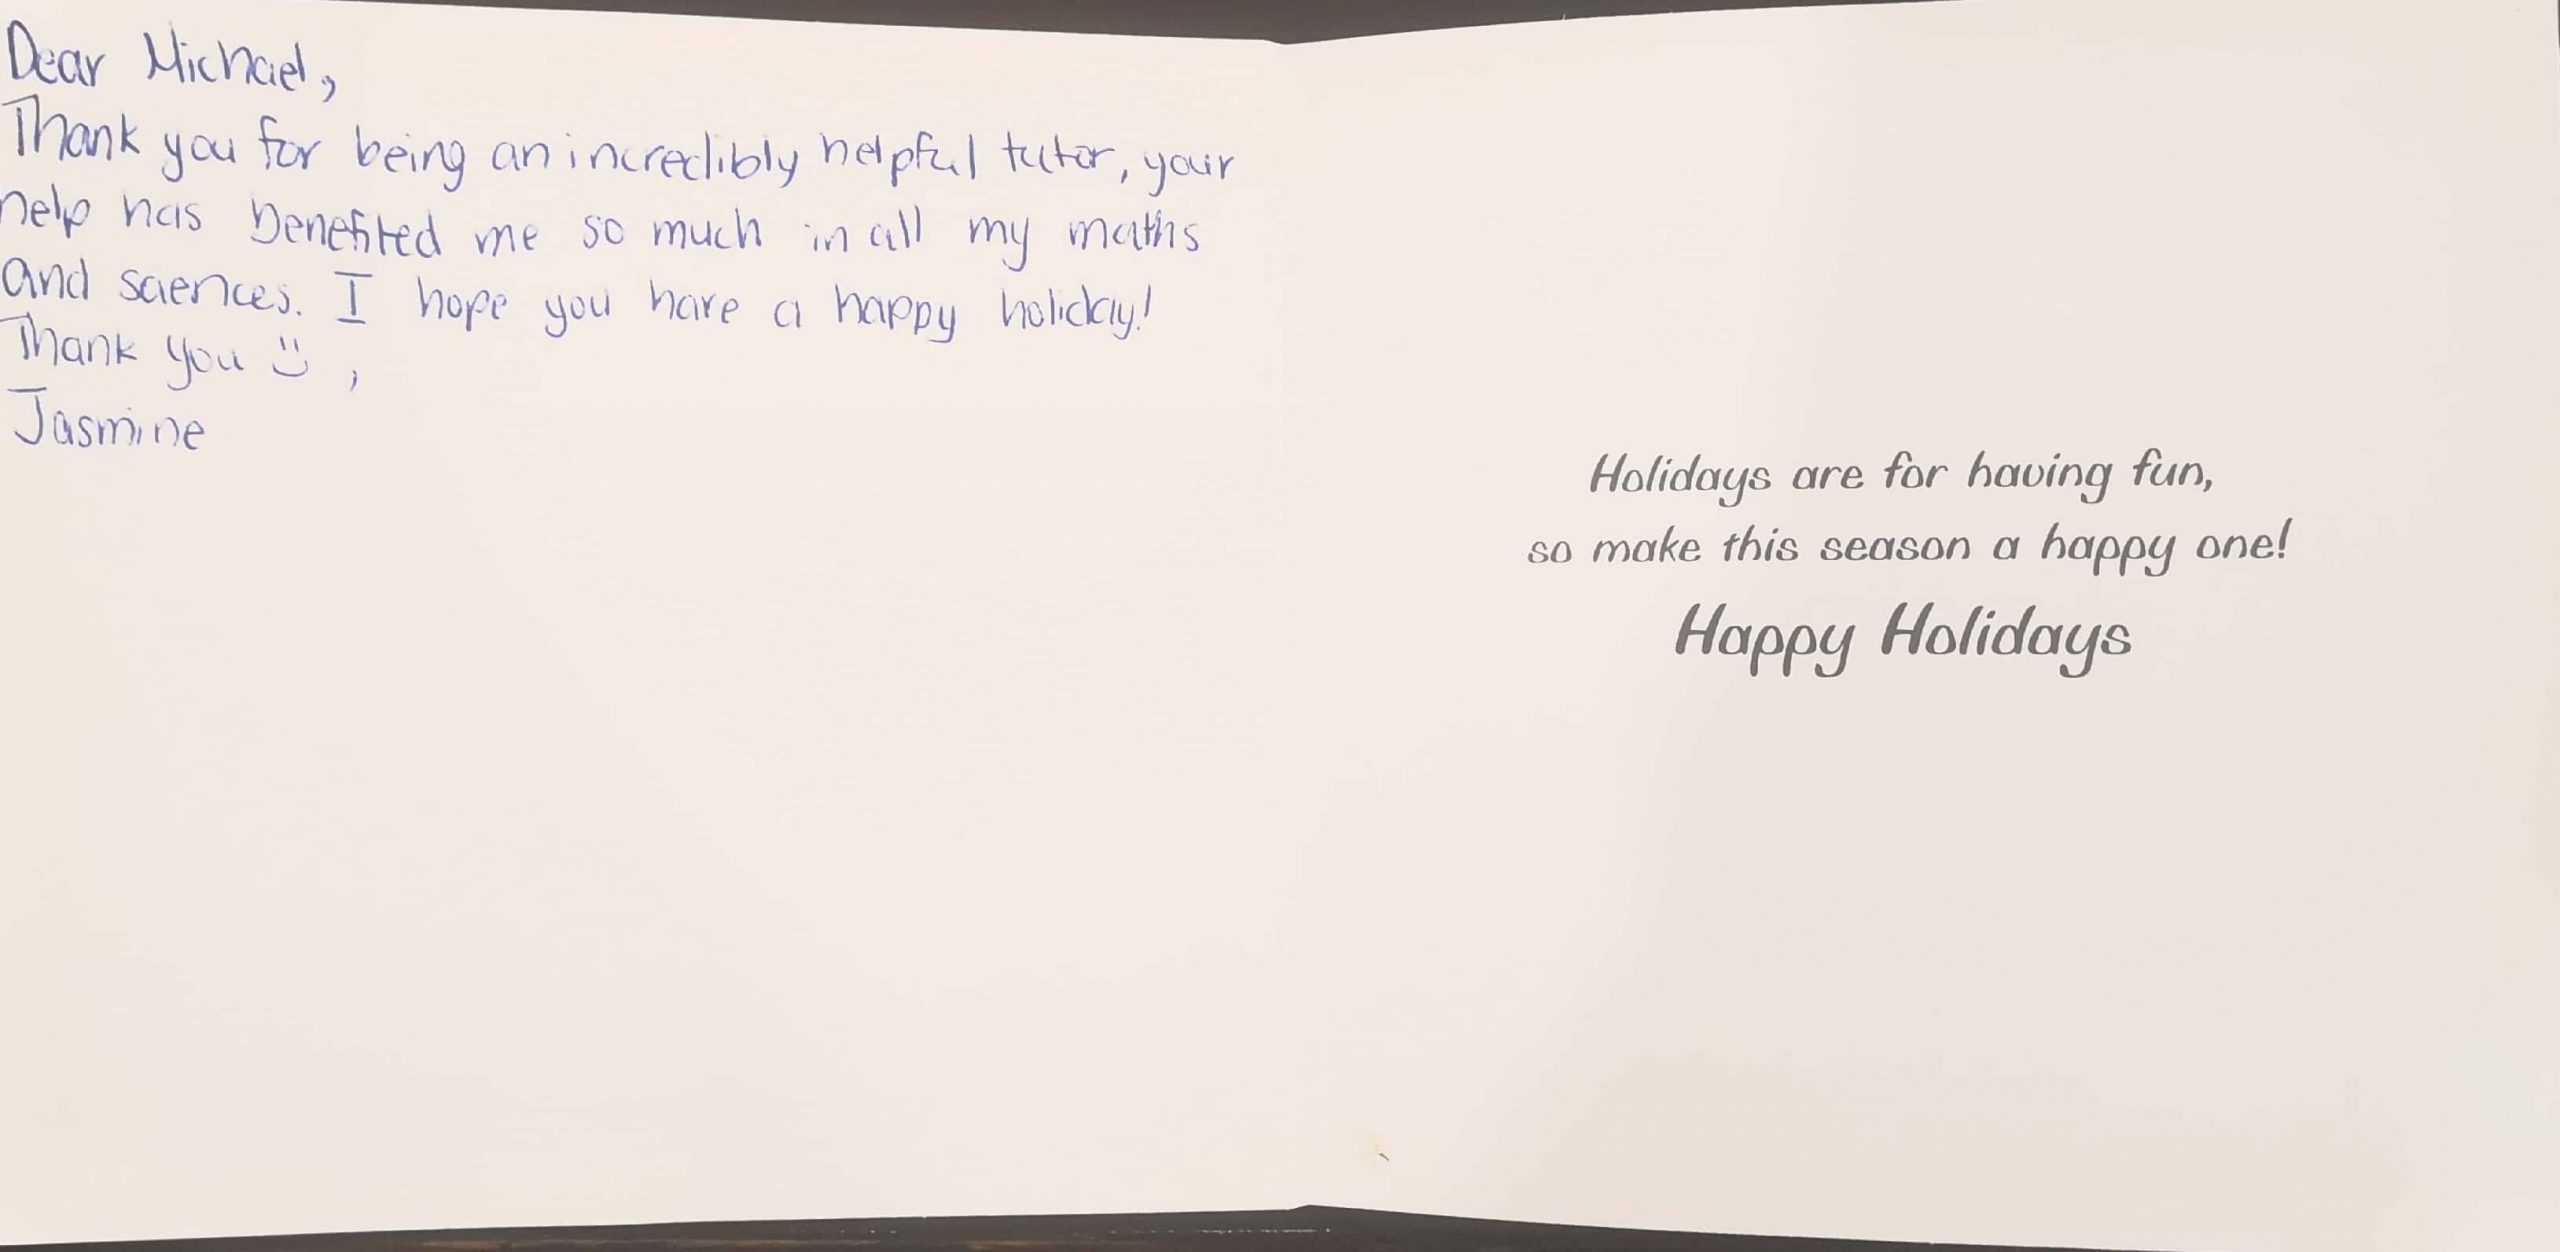 Dear Michael,
Thank you for being an incredibly helpful tutor, your
help has benefited me so much in all my maths
and sciences. I hope you have a happy holiday!
Thank you :) ,
Jasmine
Holidays are for having fun,
so make this season a happy one!
Happy Holidays